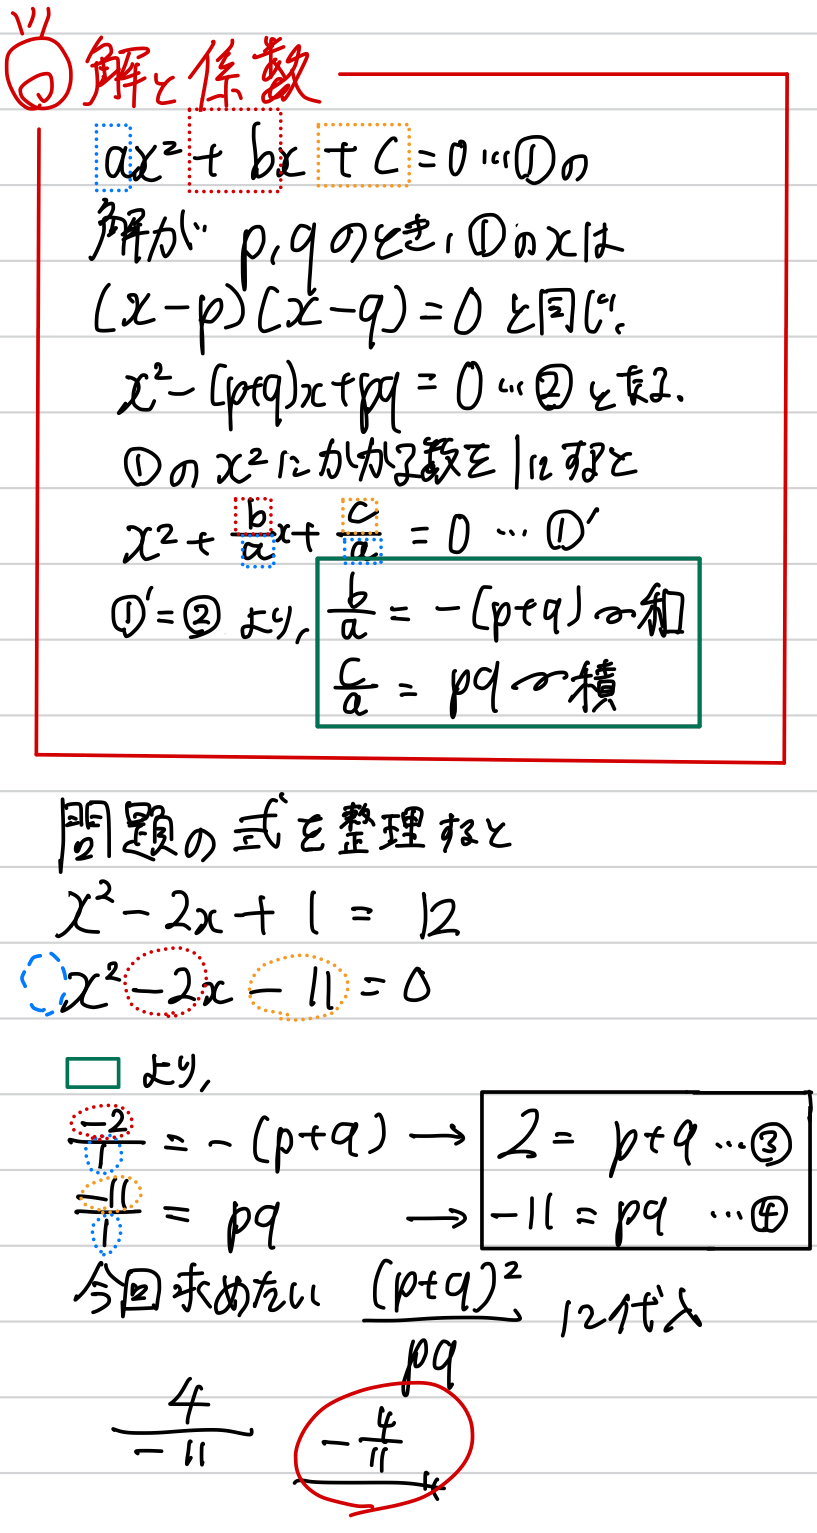 解と係数
ax² + bx + c = 0 …①の
解が p,qのとき、①のxは
(x-p)(x-q)=0 と同じ、
x²-(p+q)x+pq = 0 …② となる.
①のx²にかかる数を1にすると
x² + b/a x + c/a = 0 … ①'
①'=② より、 b/a = -(p+q) 〜和
c/a = pq 〜積
問題の式を整理すると
x² - 2x + 1 = 12
x² - 2x - 11 = 0
より、
-2/1 = -(p+q) → 2 = p+q …③
-11/1 = pq → -11 = pq …④
今回求めたい (p+q)²/pq に代入
4/-11 -4/11